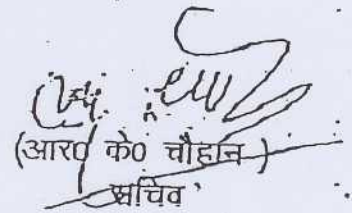 (आर० के० चौहान)
सचिव